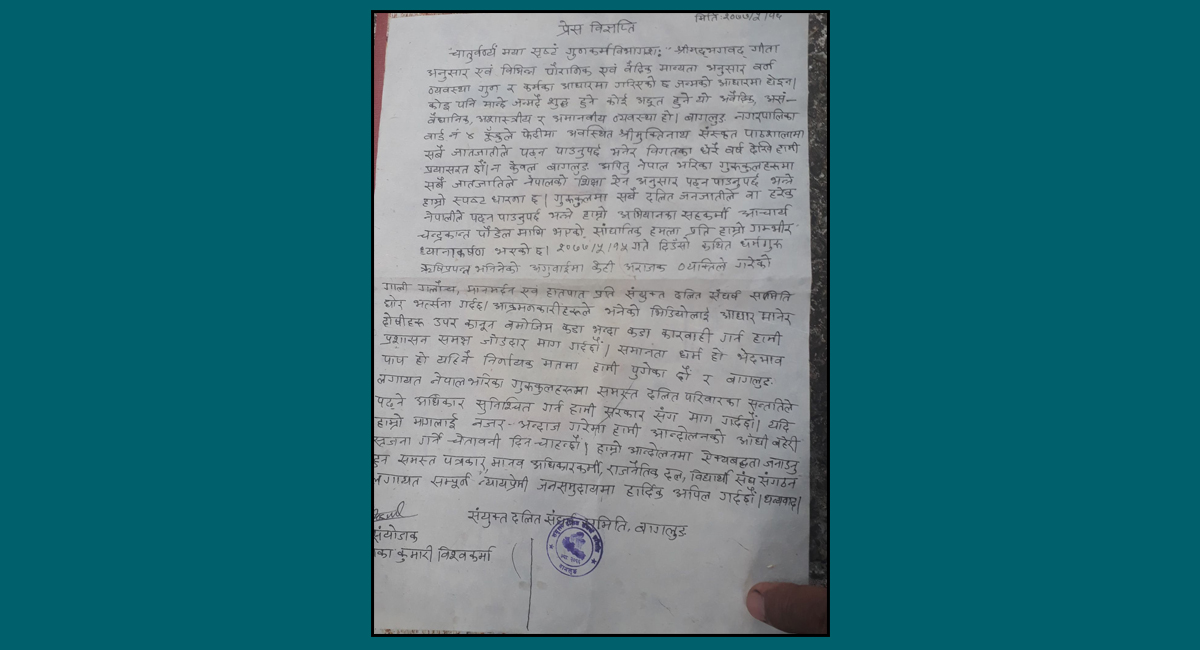 मिति: २०७७/५/१८
प्रेस विज्ञप्ति
"चातुर्वर्ण्यं मया सृष्टं गुणकर्मविभागसः" श्रीमद्भगवद् गीता
अनुसार एवं विभिन्न पौराणिक एवं वैदिक मान्यता अनुसार वर्ण
व्यवस्था गुण र कर्मका आधारमा गरिएको छ जन्मको आधारमा होइन।
कोइ पनि मान्छे जन्मदै शुद्ध हुने कोई अछूत हुने यो अवैदिक, असं-
वैधानिक, अशास्त्रीय र अमानवीय व्यवस्था हो। बागलुङ नगरपालिका
वार्ड नं ४ कुँडुले फेदीमा अवस्थित श्रीमुक्तिनाथ संस्कृत पाठशालामा
सबै जातजातीले पढ्न पाउनुपर्छ भनेर विगतका धेरै वर्ष देखि हामी
प्रयासरत छौं। न केवल बागलुङ अपितु नेपाल भरिका गुरुकुलहरूमा
सबै जातजातिले नेपालको शिक्षा ऐन अनुसार पढ्न पाउनुपर्छ भन्ने
हाम्रो स्पष्ट धारणा छ। गुरुकुलमा सबै दलित जनजातीले वा हरेक
नेपालीले पढ्न पाउनुपर्छ भन्ने हाम्रो अभियानका सहकर्मी आचार्य
चन्द्रकान्त पौडेल माथि भएको सांघातिक हमला प्रति हाम्रो गम्भीर
ध्यानाकर्षण भएको छ। २०७७/५/१५ गते दिउँसो कथित धर्मगुरु
ऋषिप्रपन्न भनिनेको अगुवाईमा केही अराजक व्यक्तिले गरेको
गाली गलौज, मानमर्दन एवं हातपात प्रति संयुक्त दलित संघर्ष समिति
घोर भर्त्सना गर्दछ। आक्रमनकारीहरूले भनेको भिडियोलाई आधार मानेर
दोषीहरू उपर कानून बमोजिम कडा भन्दा कडा कारवाही गर्न हामी
प्रशासन समक्ष जोडदार माग गर्दछौं। समानता धर्म हो भेदभाव
पाप हो यहिनै निर्णायक मतमा हामी पुगेका छौं र बागलुङ
लगायत नेपालभरिका गुरुकुलहरूमा समस्त दलित परिवारका सन्ततिले
पढ्ने अधिकार सुनिश्चित गर्न हामी सरकार संग माग गर्दछौं। यदि
हाम्रो मागलाई नजर-अन्दाज गरेमा हामी आन्दोलनको आँधी बेहेरी
सृजना गर्ने चेतावनी दिन चाहन्छौं। हाम्रो आन्दोलनमा ऐक्यबद्धता जनाउनु
हुन समस्त पत्रकार, मानव अधिकारकर्मी, राजनैतिक दल, विद्यार्थी संघ संगठन
लगायत सम्पूर्ण न्यायप्रेमी जनसमुदायमा हार्दिक अपिल गर्दछौं। धन्यवाद।
संयुक्त दलित संघर्ष समिति, बागलुङ
संयोजक
का कुमारी विश्वकर्मा